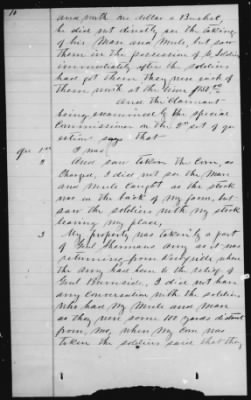 10
and worth one dollar a Bushel,
he did not directly see the taking
of his Mare and Mule, but saw
them in the possession of the soldiers
immediately after the soldiers
had got them they were each of
them worth at the time $150.00
And the Claimant
being examined by the special
Commissioner on the 2nd set of qu
estions says that
Qu 1st I was
2 And saw taken the Corn, as
Charged, I did not see the Mare
and Mule Caught as the stock
was in the back of my farm, but
saw the soldiers with my stock
leaving my place,
3 My property was taken by a part
of Genl Shermans army as it was
returning from Knoxville when
the army had been to the relief of
Genl Burnside, I did not have
any Conversation with the soldiers
who had my Mule and Mare
as they were some 100 yards distant
from me, when my Corn was
taken the soldiers said that they